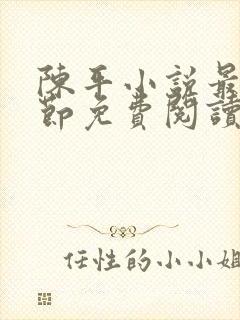 陳平小説最
節免費閱讀
任性的小小姐